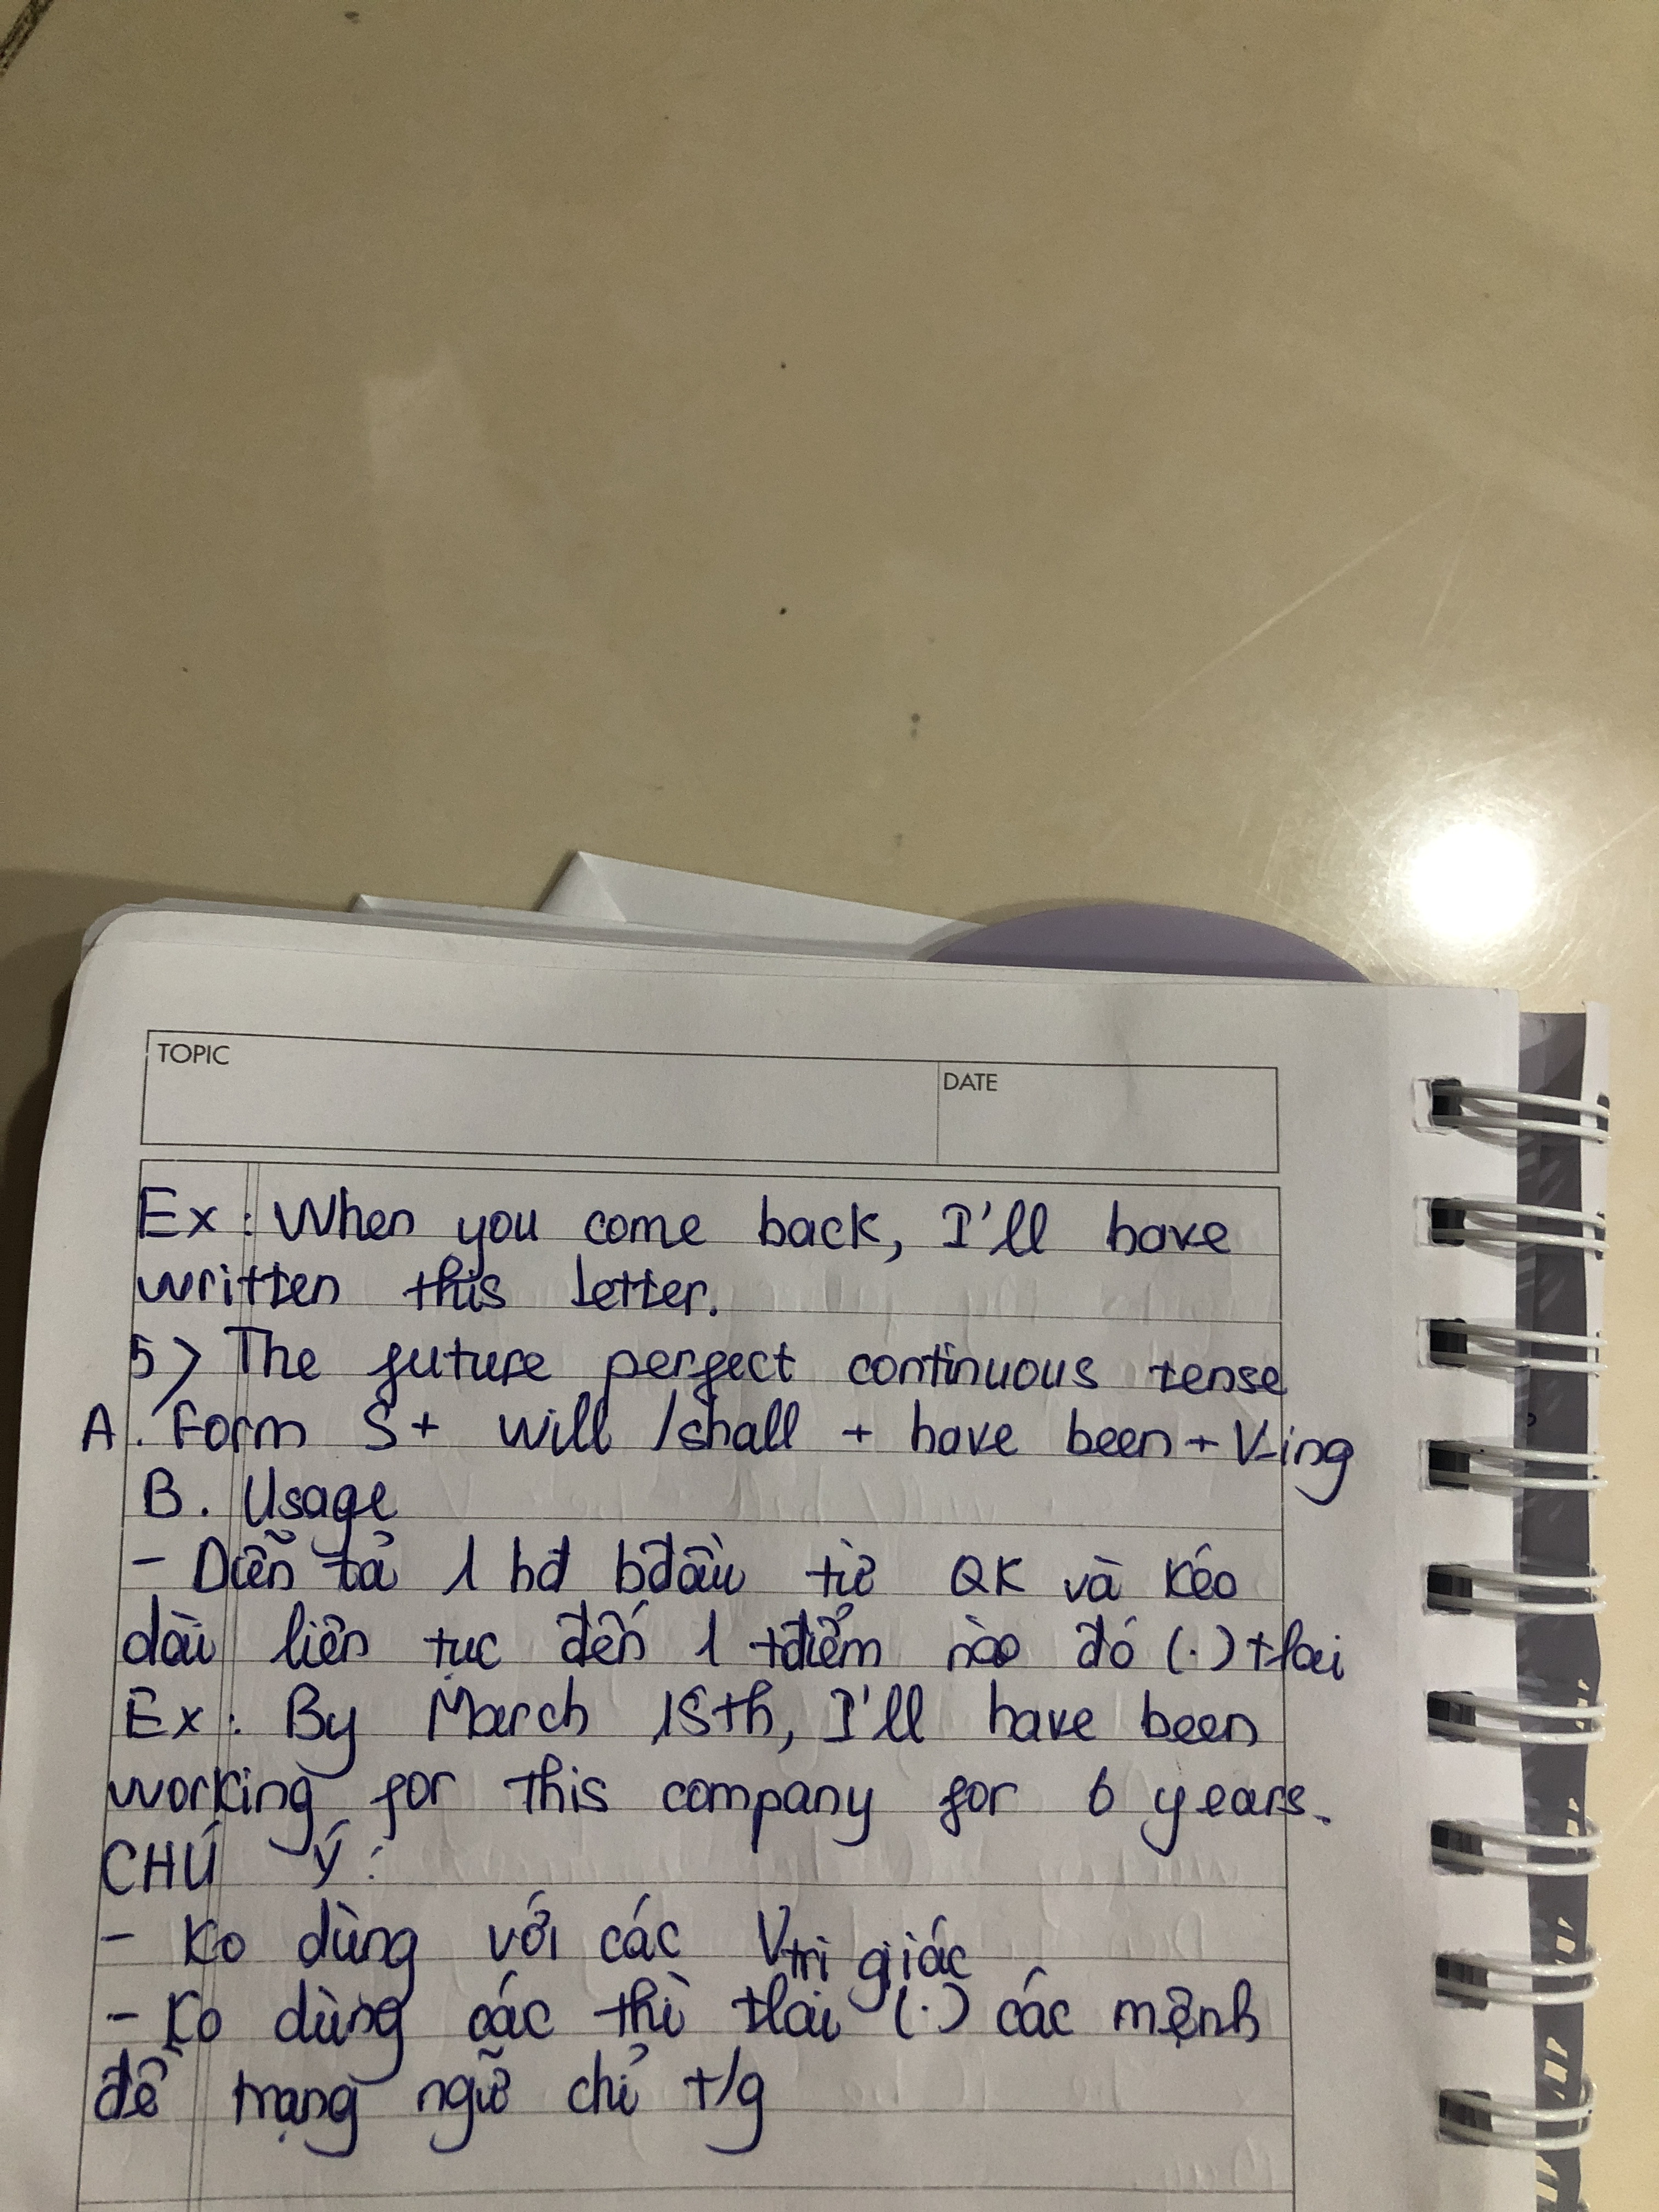 TOPIC
DATE
Ex: When you come back, I'll have
written this letter.
5) The future perfect continuous tense
A. Form S + will / shall + have been + V-ing
B. Usage
- Diễn tả 1 hđ bđầu từ QK và kéo
dài liên tục đến 1 tđiểm nào đó (.) tlai
Ex: By March 15th, I'll have been
working for this company for 6 years.
CHÚ Ý:
- Ko dùng với các V tri giác
- Ko dùng các thì tlai (.) các mệnh
đề trạng ngữ chỉ t/g